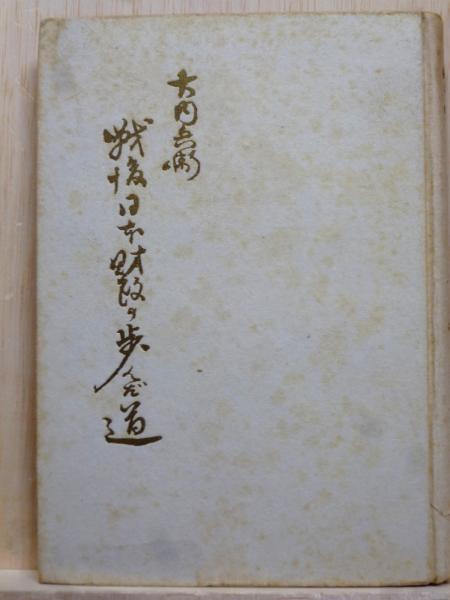 大内兵衛
戦後日本財政の歩んだ道